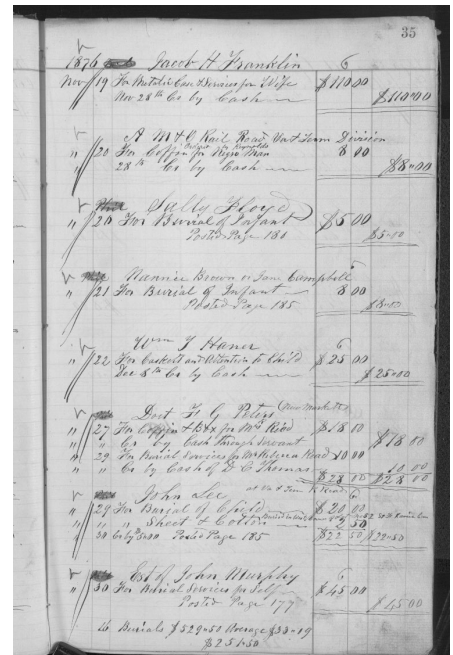 35
1876 Jacob H Franklin 6
Nov 19 For Metalic Case & Services for Wife $110 00
Nov 28th Cr by Cash $110.00
A M & O Rail Road Va & Tenn Division
" 20 For Coffin for Negro Man 8 00
" 28th Cr by Cash $8.00
Sally Floyd
" 20 For Burial of Infant $5 00
Posted Page 180 $5.00
Nannie Brown or Jane Campbell
" 21 For Burial of Infant 8 00
Posted Page 185 $8.00
Wm J Haner 6
" 22 For Caskett and Attention to Child $25 00
Dec 8th Cr by Cash $25.00
Doct F. G Peters
" 27 For Coffin & Box for Mrs Road $18 00
" " Cr by Cash Through Servant $18 00
" 29 For Burial Services for Road 10 00
" " Cr by Cash of D C Thomas 10 00
$28 00 $28 00
John Lee
" 29 For Burial of Child $20 00
" " " Sheet & Cotton 2 50
" 30 Cr by Posted Page 185 $22 50 $22.50
Est of John Murphy 6
" 30 For Burial Services for Self $45 00
Posted Page 177 $45 00
16 Burials $529.50 Average $33.09
$251.50